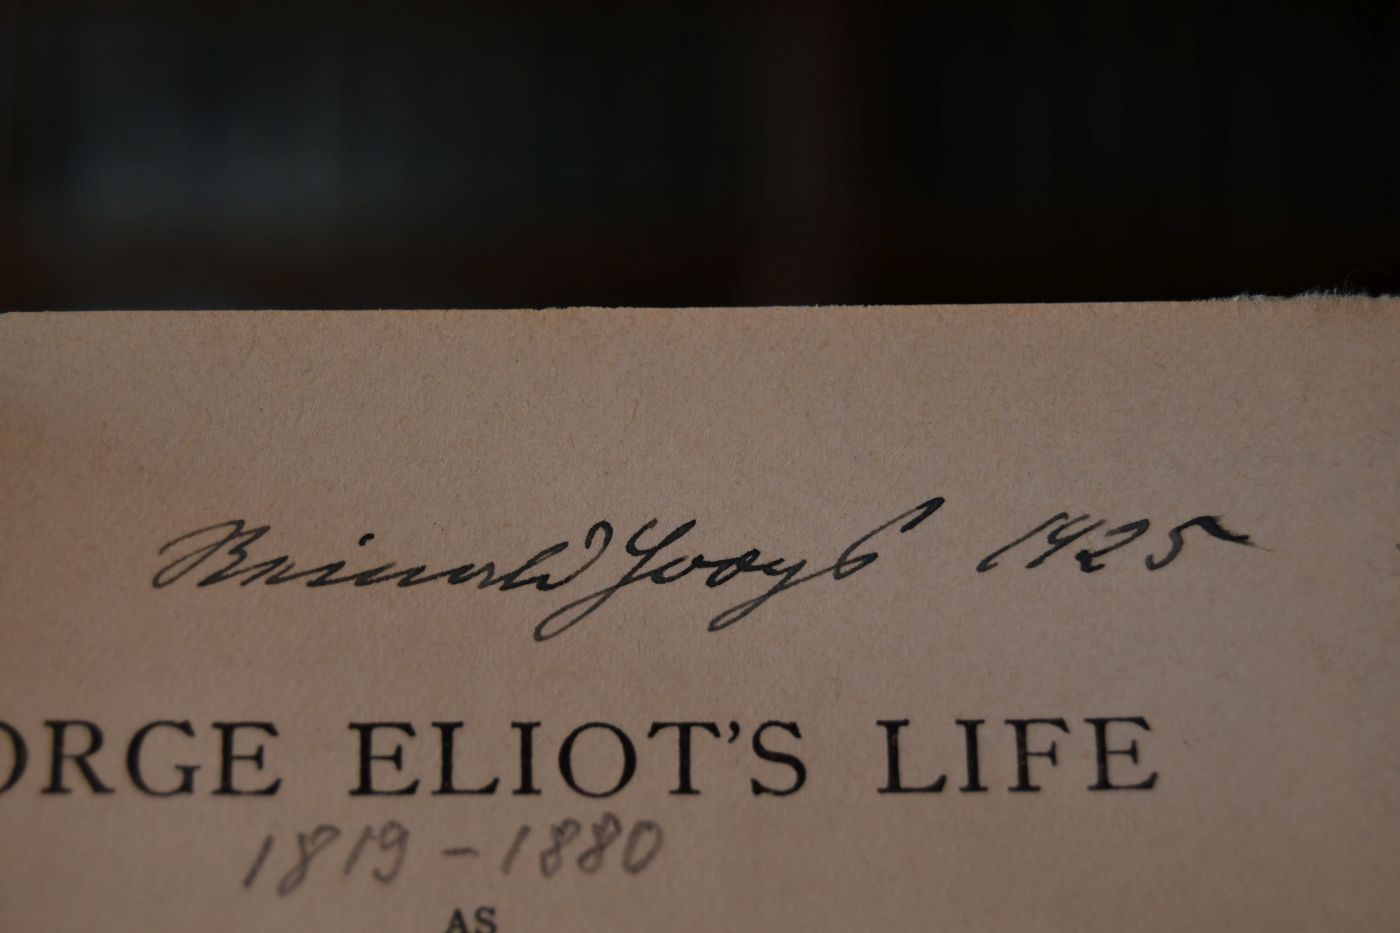 Reinald Hoops 1925
ORGE ELIOT'S LIFE
1819-1880
AS